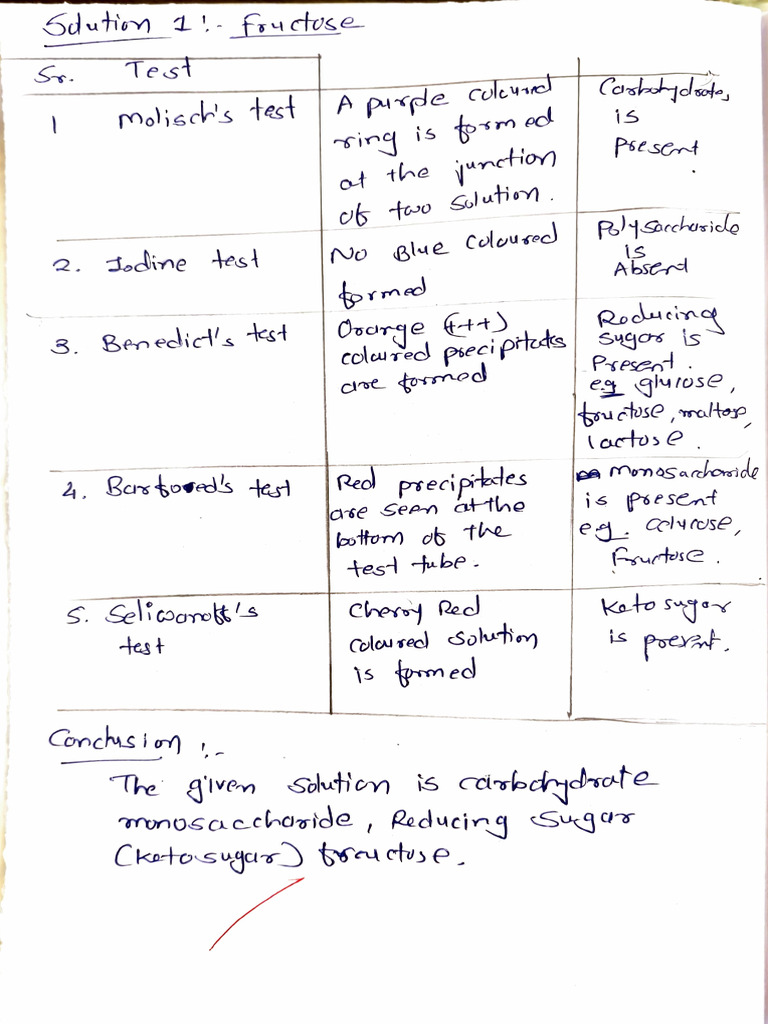 Solution 1 :- Fructose
Sr. Test
1 Molisch's test
A purple coloured
ring is formed
at the junction
of two solution.
Carbohydrates
is
Present.
2. Iodine test
No Blue coloured
formed
Polysaccharide
is
Absent
3. Benedict's test
Orange (+++)
coloured precipitates
are formed
Reducing
sugar is
Present.
e.g glucose,
fructose, maltose,
lactose.
4. Barfoed's test
Red precipitates
are seen at the
bottom of the
test tube.
monosaccharide
is present
e.g. Glucose,
Fructose.
5. Seliwanoff's
test
Cherry Red
coloured solution
is formed
Keto sugar
is present.
Conclusion :-
The given solution is carbohydrate
monosaccharide, Reducing sugar
(keto sugar) fructose.